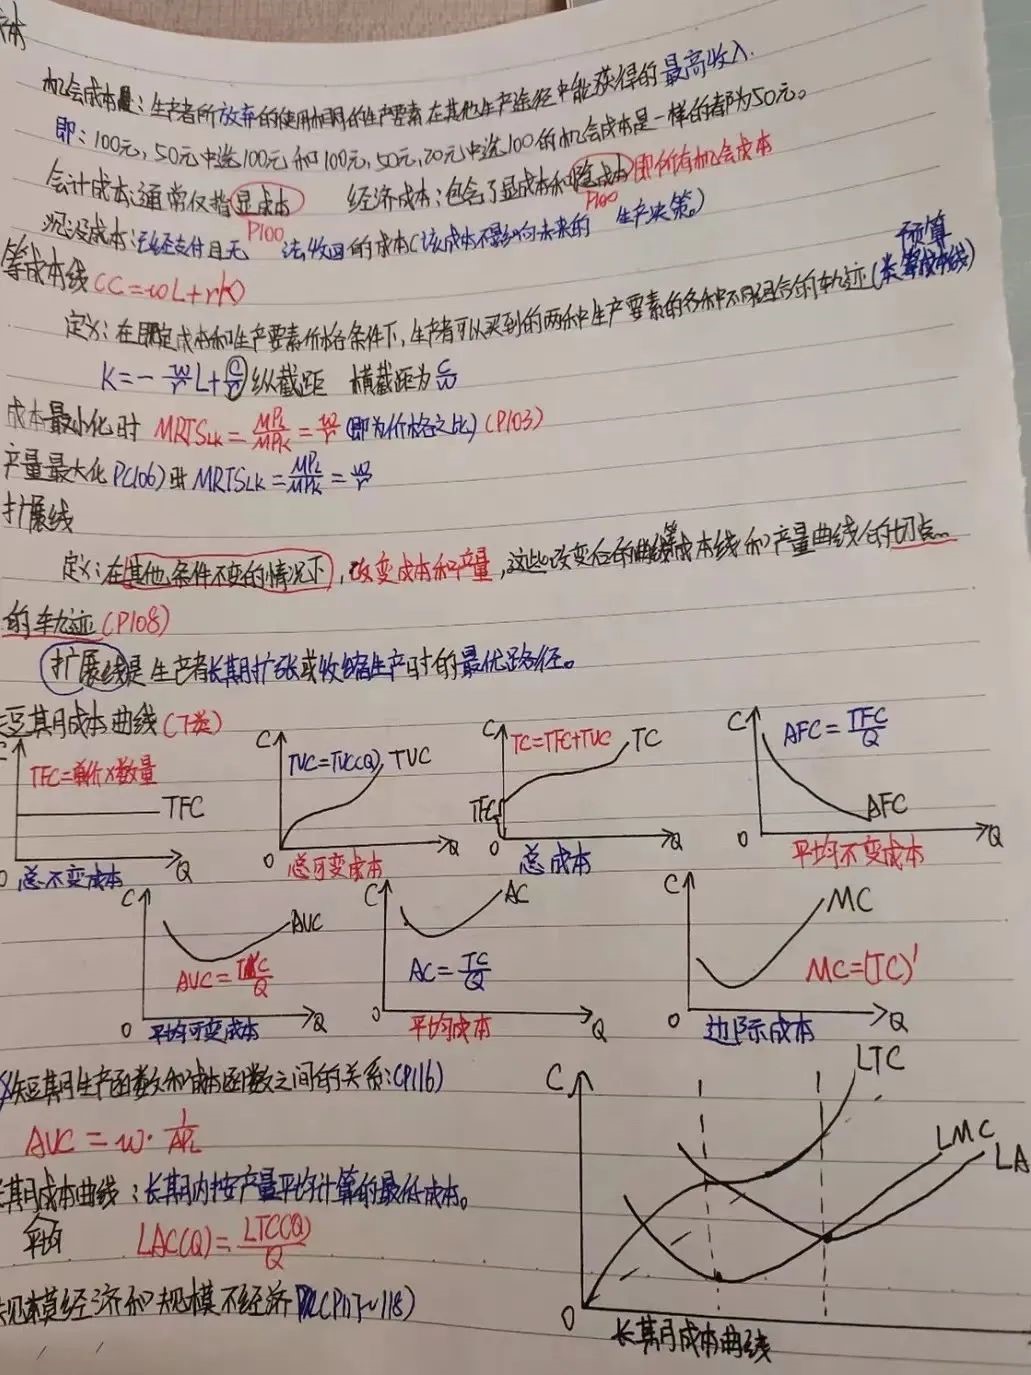 机会成本：生产者所放弃的使用相同的生产要素在其他生产途径中能获得的最高收入.
即：100元，50元中选100元和100元，50元，20元中选100的机会成本是一样的都为50元。
会计成本：通常仅指显成本 经济成本：包含了显成本和隐成本 即所有机会成本
P100 P100
沉没成本：已经支付且无法收回的成本（该成本不影响未来的生产决策。）
等成本线 (C=wL+rK)
预算
定义：在既定成本和生产要素价格条件下，生产者可以买到的两种生产要素的各种不同组合的轨迹（类等成本线）
K=-w/r L+C/r 纵截距 横截距为C/w
成本最小化时 MRTSLK=MPL/MPK=w/r (即为价格之比) (P103)
产量最大化P(106)时 MRTSLK=MPL/MPK=w/r
扩展线
定义：在其他条件不变的情况下，改变成本和产量，这些改变后的等成本线和产量曲线的切点
的轨迹(P108)
扩展线是生产者长期扩张或收缩生产时的最优路径。
短期成本曲线(7类)
C TFC=单价×数量 TFC O Q 总不变成本
C TVC=TVC(Q) TVC O Q 总可变成本
C TC=TFC+TVC TC TFC O Q 总成本
C AFC=TFC/Q AFC O Q 平均不变成本
C AVC AVC=TVC/Q O Q 平均可变成本
C AC AC=TC/Q O Q 平均成本
C MC MC=(TC)' O Q 边际成本
短期生产函数和成本函数之间的关系：(P116)
AVC=w·1/APL
长期平均成本曲线：长期内按产量平均计算的最低成本。
LAC(Q)=LTC(Q)/Q
规模经济和规模不经济(P117~118)
C LTC LMC LA O
长期成本曲线